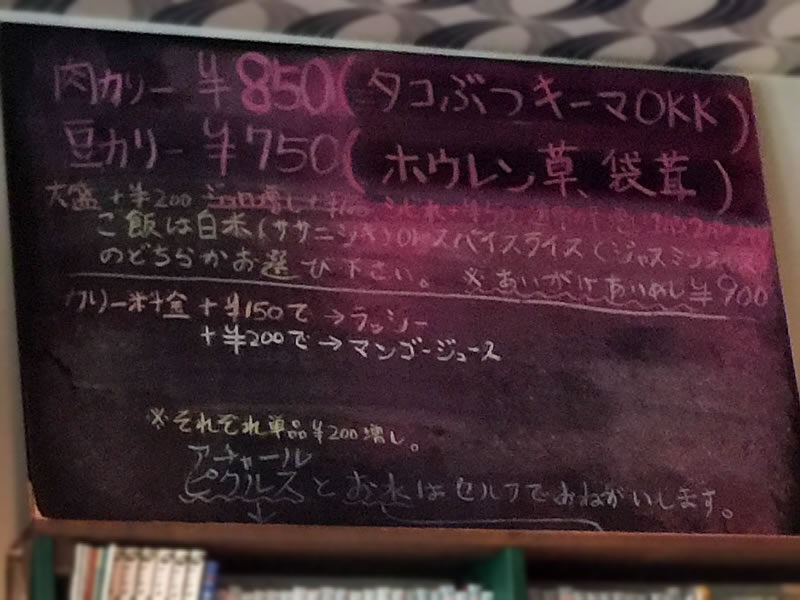 肉カリー ¥850(タコぶつキーマOKK)
豆カリー ¥750(ホウレン草、袋茸)
大盛+¥200
ご飯は白米(ササニシキ)orスパイスライス(ジャスミンライス)
のどちらかお選び下さい。 ※あいがけあいめし¥900
カリー料金 +¥150で→ラッシー
+¥200で→マンゴージュース
※それぞれ単品¥200増し。
アチャール
ピクルスとお水はセルフでおねがいします。